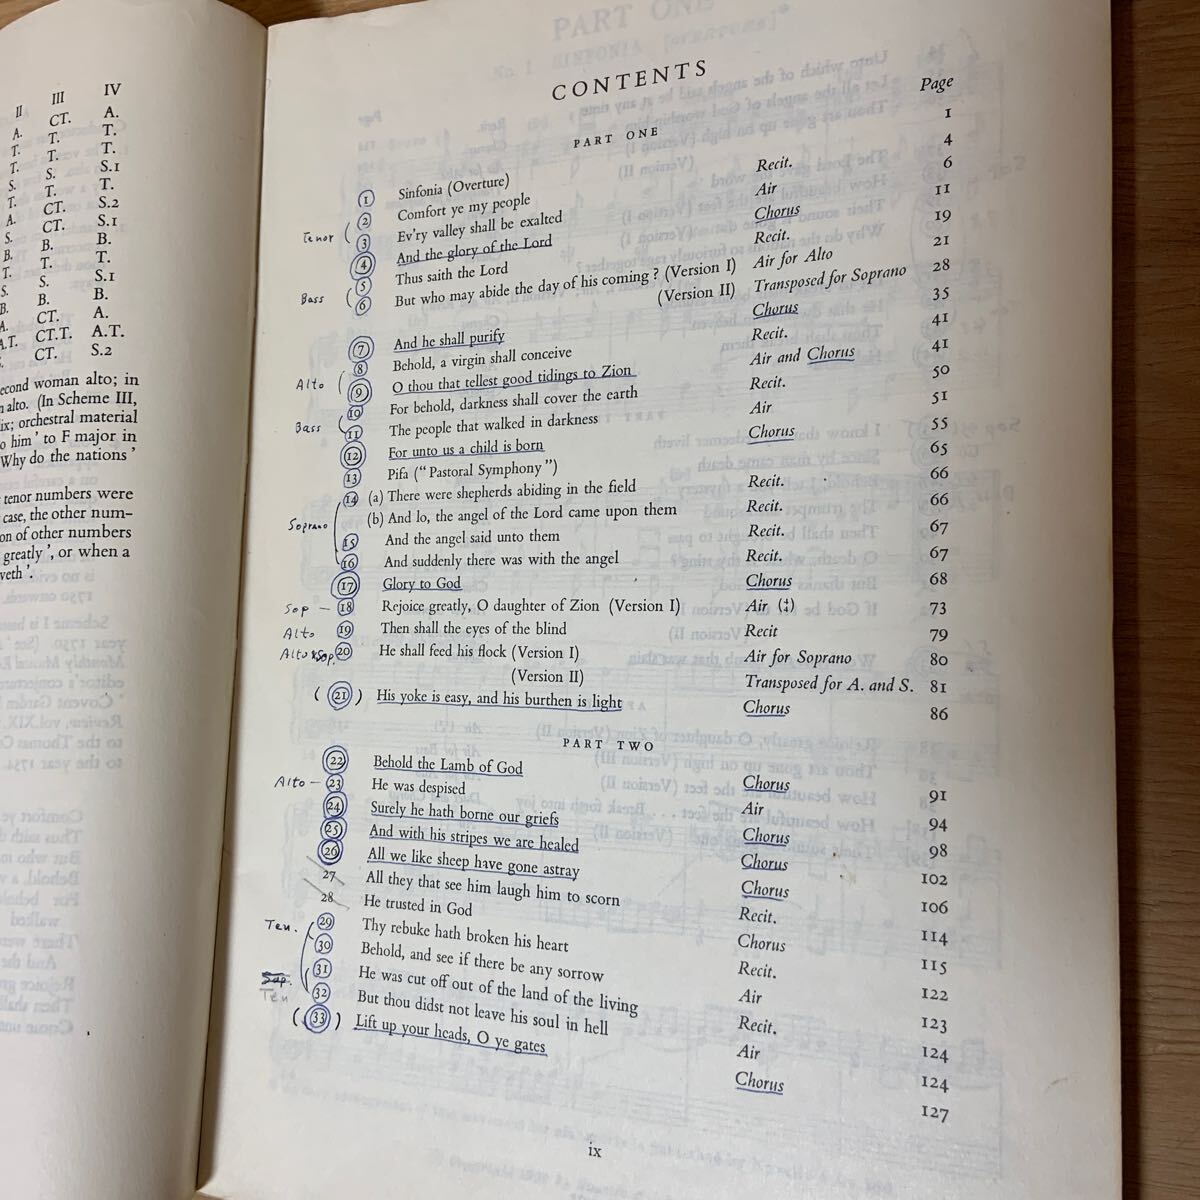 II III IV
A. CT. A.
T. T. T.
T. T. T.
S. S. S.1
T. T. T.
A. CT. S.2
S. CT. S.1
B. B. B.
T. T. T.
S. S. S.1
B. B. B.
A. CT. A.
A.T. CT.T. A.T.
CT. S.2
second woman alto; in
alto. (In Scheme III,
ix; orchestral material
to him' to F major in
Why do the nations'
tenor numbers were
case, the other num-
on of other numbers
greatly', or when a
veth'.
CONTENTS
Page
PART ONE
1 Sinfonia (Overture) 1
Tenor
2 Comfort ye my people Recit. 4
3 Ev'ry valley shall be exalted Air 6
4 And the glory of the Lord Chorus 11
Bass
5 Thus saith the Lord Recit. 19
6 But who may abide the day of his coming? (Version I) Air for Alto 21
(Version II) Transposed for Soprano 28
7 And he shall purify Chorus 35
Alto
8 Behold, a virgin shall conceive Recit. 41
9 O thou that tellest good tidings to Zion Air and Chorus 41
Bass
10 For behold, darkness shall cover the earth Recit. 50
11 The people that walked in darkness Air 51
12 For unto us a child is born Chorus 55
13 Pifa ("Pastoral Symphony") 65
Soprano
14 (a) There were shepherds abiding in the field Recit. 66
(b) And lo, the angel of the Lord came upon them Recit. 66
15 And the angel said unto them Recit. 67
16 And suddenly there was with the angel Recit. 67
17 Glory to God Chorus 68
Sop – 18 Rejoice greatly, O daughter of Zion (Version I) Air (4/4) 73
Alto 19 Then shall the eyes of the blind Recit 79
Alto & Sop. 20 He shall feed his flock (Version I) Air for Soprano 80
(Version II) Transposed for A. and S. 81
(21) His yoke is easy, and his burthen is light Chorus 86
PART TWO
22 Behold the Lamb of God Chorus 91
Alto – 23 He was despised Air 94
24 Surely he hath borne our griefs Chorus 98
25 And with his stripes we are healed Chorus 102
26 All we like sheep have gone astray Chorus 106
27 All they that see him laugh him to scorn Recit. 114
28 He trusted in God Chorus 115
Ten. 29 Thy rebuke hath broken his heart Recit. 122
30 Behold, and see if there be any sorrow Air 123
Sop.
Ten
31 He was cut off out of the land of the living Recit. 124
32 But thou didst not leave his soul in hell Air 124
(33) Lift up your heads, O ye gates Chorus 127
ix